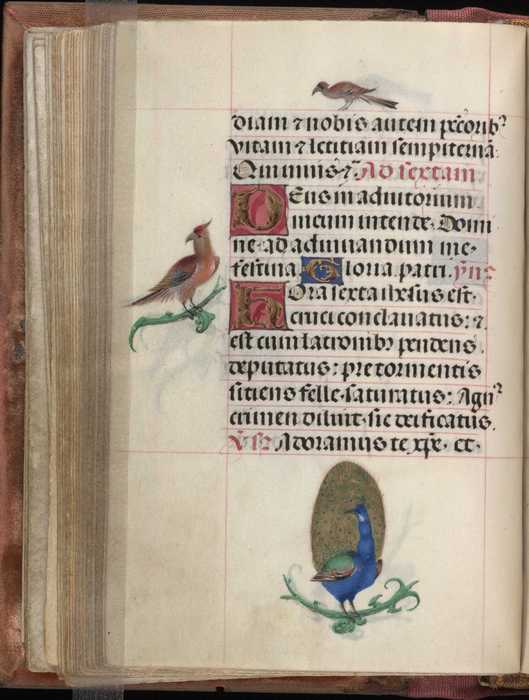 diam ⁊ nobis autem pctorib⁹
vitam ⁊ letitiam sempiterna.
Qui uiuis ⁊c̄ Ad sextam
Deus in adiutorium
meum intende. Domi
ne ad adiuuandum me
festina. Gloria patri. yn̄s
Hora sexta ihesus est
cruci conclauatus: ⁊
est cum latronib⁊ pendens
deputatus: pre tormentis
sitiens felle saturatus: Agn⁹
crimen diluit sic deificatus.
Adoramus te xp̄e. ēt.